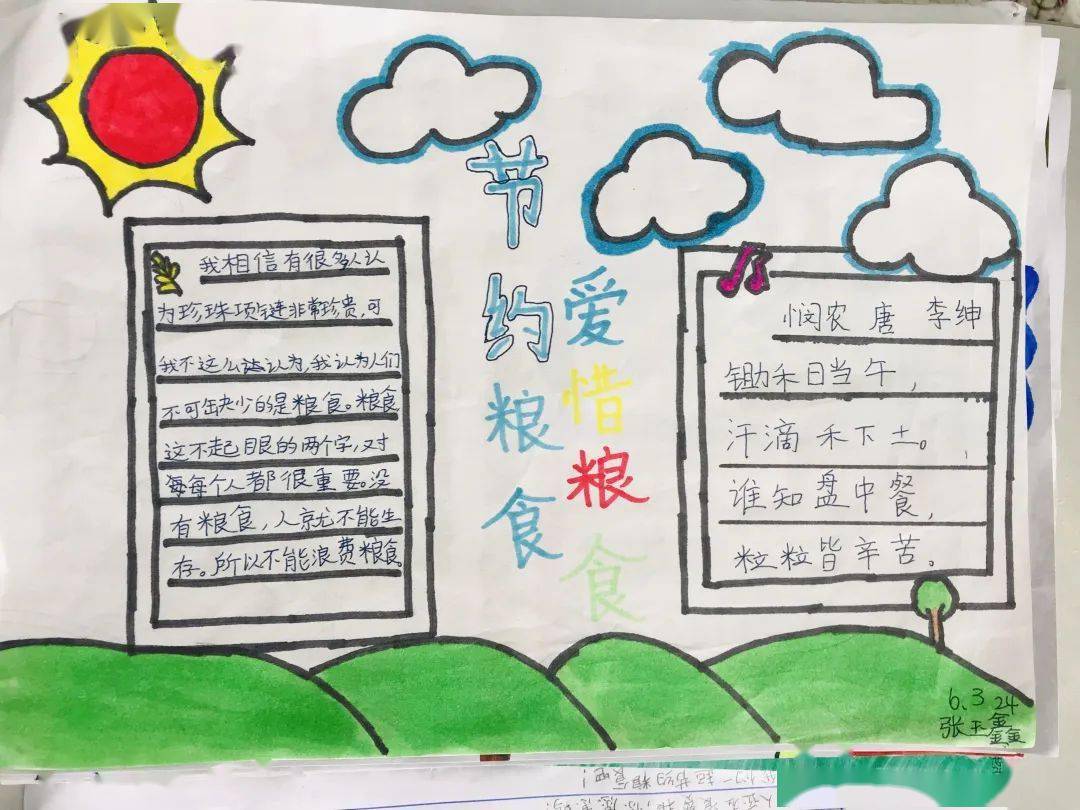 节约粮食
爱惜粮食
我相信有很多人认
为珍珠项链非常珍贵,可
我不这么认为,我认为人们
不可缺少的是粮食。粮食
这不起眼的两个字,对
每每个人都很重要。没
有粮食,人就不能生
存。所以不能浪费粮食
悯农 唐 李绅
锄禾日当午,
汗滴禾下土。
谁知盘中餐,
粒粒皆辛苦。
6.3 24
张玉鑫